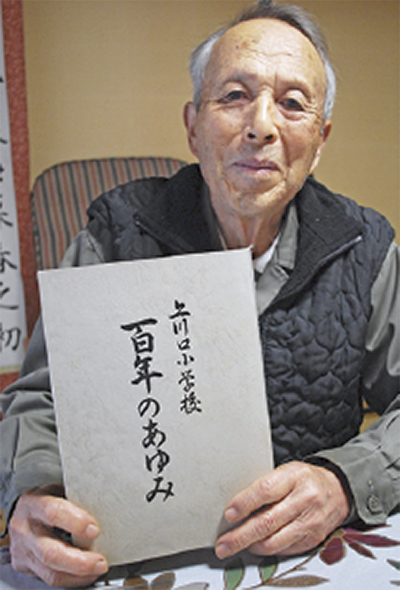 上川口小学校
百年のあゆみ